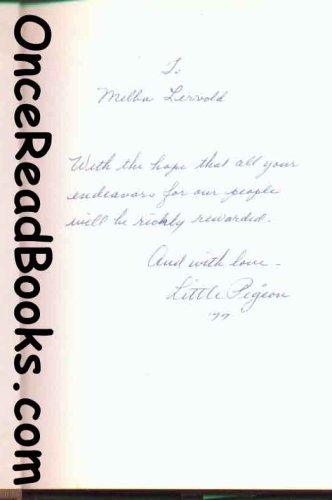 OnceReadBooks.com
To
Melba Lervold
With the hope that all your
endeavors for our people
will be richly rewarded.
And with love -
Little Pigeon
'77